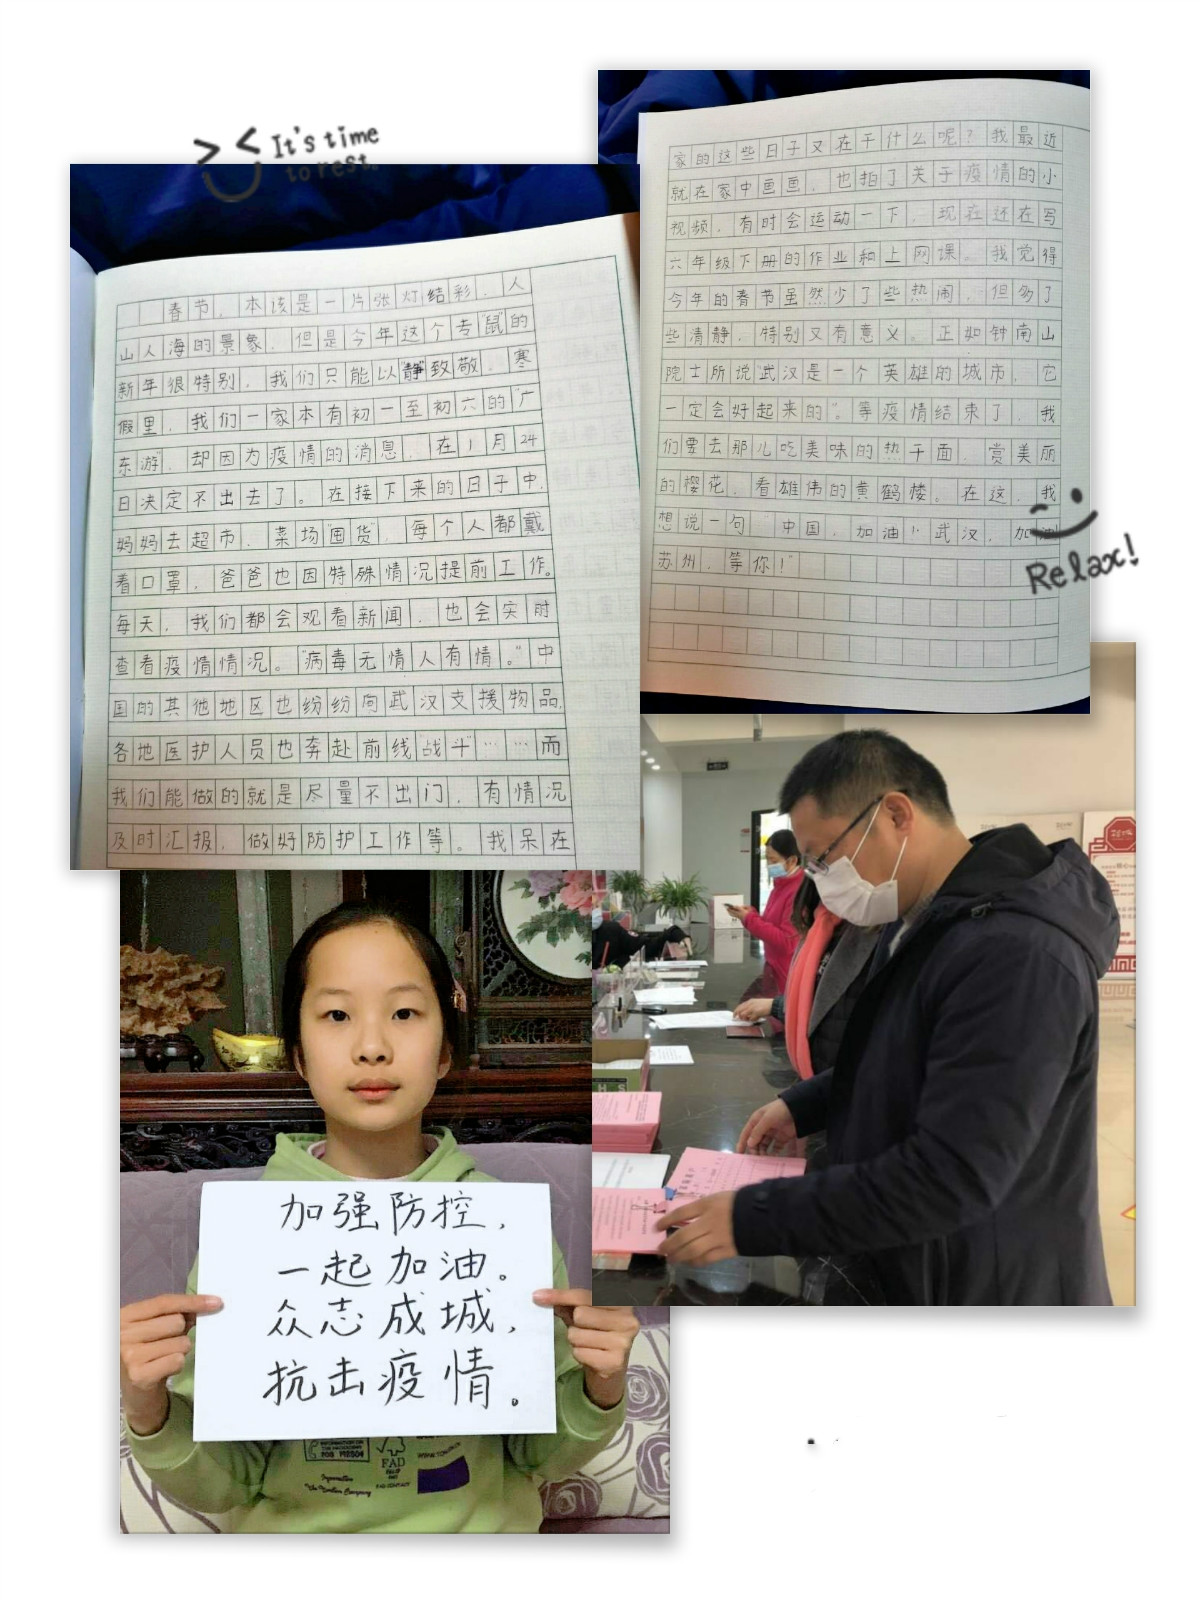 It's time
to rest.
春节，本该是一片张灯结彩、人
山人海的景象，但是今年这个专“鼠”的
新年很特别，我们只能以“静”致敬。寒
假里，我们一家本有初一至初六的“广
东游”，却因为疫情的消息，在1月24
日决定不出去了。在接下来的日子中，
妈妈去超市、菜场“囤货”，每个人都戴
着口罩，爸爸也因特殊情况提前工作。
每天，我们都会观看新闻，也会实时
查看疫情情况。“病毒无情人有情。”中
国的其他地区也纷纷向武汉支援物品，
各地医护人员也奔赴前线“战斗”……而
我们能做的就是尽量不出门，有情况
及时汇报，做好防护工作等。我呆在
家的这些日子又在干什么呢？我最近
就在家中画画，也拍了关于疫情的小
视频，有时会运动一下，现在还在写
六年级下册的作业和上网课。我觉得
今年的春节虽然少了些热闹，但多了
些清静，特别又有意义。正如钟南山
院士所说“武汉是一个英雄的城市，它
一定会好起来的”。等疫情结束了，我
们要去那儿吃美味的热干面，赏美丽
的樱花，看雄伟的黄鹤楼。在这，我
想说一句“中国，加油！武汉，加油
苏州，等你！”
Relax!
加强防控，
一起加油。
众志成城，
抗击疫情。
FAD